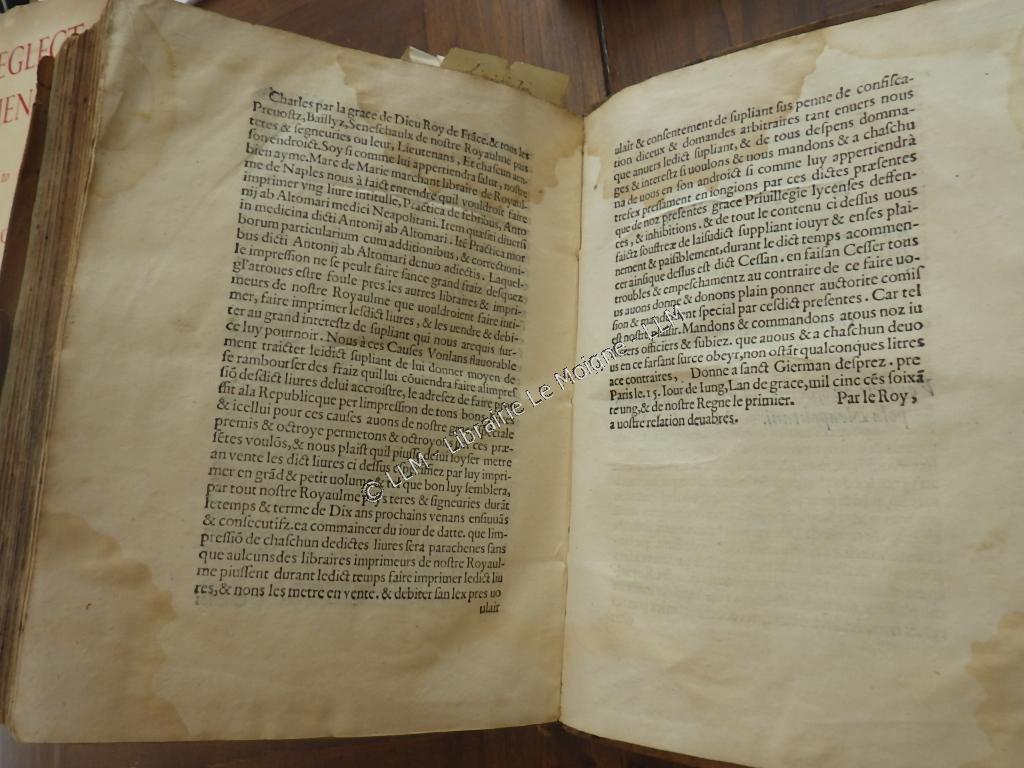 Charles par la grace de Dieu Roy de Frãce. & tous les
Preuostz, Baillyz, Seneschaulx de nostre Royaulme pais
teres & segneuries ou leur, Lieutenans, Et chascun aen-
son endroict. Soy si comme lui appertiendra salur, nostre
bien ayme. Marc de Marie marchant libraire de Royaul-
me de Naples nous à faict entendre quil vouldroit faire
imprimer vng liure intitulle, Practica de febribus, Anto
nij ab Altomari medici Neapolitani. Item quæsiti diuersi
in medicina dicti Antonij ab Altomari. Itẽ Practica mor
borum particularium cum additionibus, & correctioni-
bus dicti Antonij ab Altomari denuo adiectis. Laquel-
le impression ne se peult faire sance grand fraiz desquez
gl'atroues estre foule pres les autres libraires & impri-
meurs de nostre Royaulme que uouldroient faire inti-
mer, faire imprimer lesdict liures, & les uendre & debi-
ter au grand interestz de supliant qui nous arequis sur-
ce luy pournoir. Nous à ces Causes Vonlans fauorable
ment traicter leidict supliant de lui donner moyen de
se rambourser des fraiz quil lui cõuiendra faire alimpres
siõ desdict liures delui accroistre, le adresez de faire pro
ffit ala Republicque per limpression de tons bons liures
& icellui pour ces causes auons de nostre grace speciale
premis & octroye permetons & octroyons per ces præ-
sẽtes voulõs, & nous plaist quil piusse deiui loyser metre
an vente les dict liures ci dessus exprimez par luy impri-
mer en grãd & petit uolume & tel que bon luy semblera,
par tout nostre Royaulme pays teres & signeuries durãt
letemps & terme de Dix ans prochains venans ensiuuãs
& consecutifz. ea commaincer du iour de datte. que lim-
pressiõ de chaschun dedictes liures sera parachenes sans
que aulcuns des libraires imprimeurs de nostre Royaul-
me piussent durant ledict temps faire imprimer ledict liu
res, & nons les metre en vente. & debiter san lex pres uo
ulair
ulair & consentement de supliant sus penne de confisca-
tion diceux & domandes arbitraires tant enuers nous
que anuers ledict supliant, & de tous despens domma-
ges & interestz si uoulons & uous mandons & a chaschu
na de uous en son androict si comme luy appertiendrà
tresex pressament en longions par ces dictes præsentes
que de noz presentes grace Priuillegie lycenses deffen-
ces, & inhibitions. & de tout le contenu ci dessus uous
faictz souffrez de laisudict suppliant iouyr & enses plai-
nement & paisiblement, durant le dict temps acommen-
cer ainsique dessus est dict Cessan. en faisan Cesser tous
troubles & empeschamentz au contraire de ce faire uo-
us auons donne & donons plain ponner auctorite comis
sion & mandement special par cesdict presentes. Car tel
est nostre plaisir. Mandons & commandons atous noz iu
sticiers officiers & subiez. que auous & a chaschun deuo
us en ce farsant surce obeyr, non ostãt qualconques litres
ace contraires, Donne a sanct Gierman desprez. pre
Paris le. 15. Iour de Iung, Lan de grace, mil cinc cẽs soixã
te ung, & de nostre Regne le primier. Par le Roy,
a uostre relation deuabres.
© LLM - Librairie Le Moigne - LLM